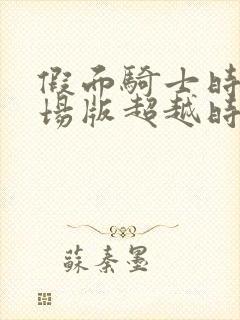 假面騎士時
場版超越時
蘇秦墨